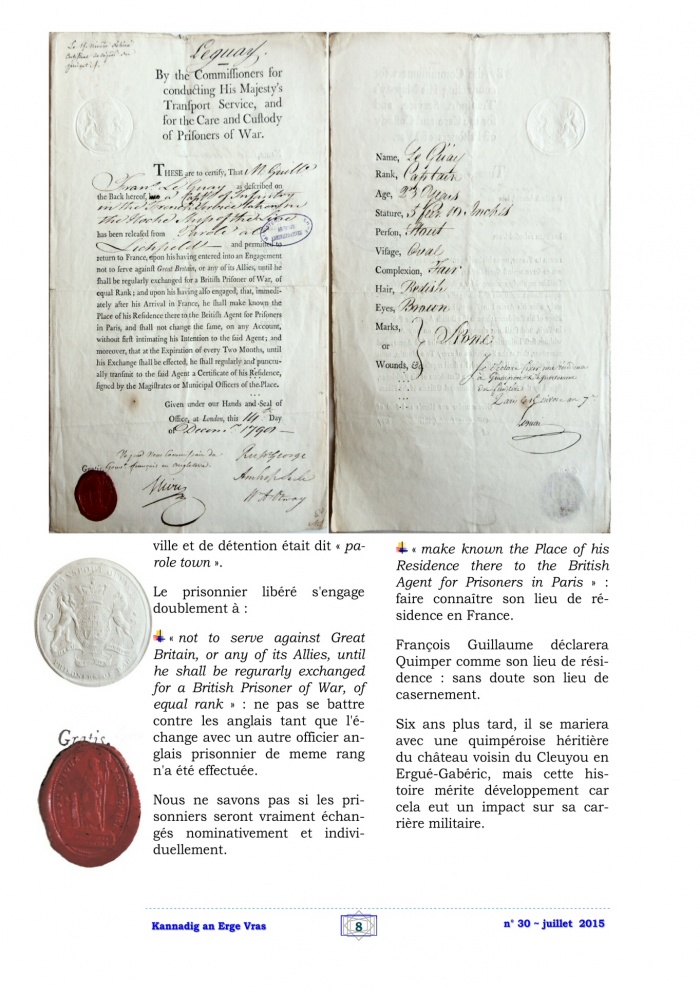 Lequay.
By the Commiſſioners for
conducting His Majeſty's
Tranſport Service, and
for the Care and Cuſtody
of Priſoners of War.
THESE are to certify, That M. Guill.
Fran. Le Quay as deſcribed on
the Back hereof, a Capt. of Infantry
in the French Service taken in
the Hoche Ship of the Line
has been released from Parole at
Lichfield and permitted to
return to France, upon his having entered into an Engagement
not to ſerve againſt Great Britain, or any of its Allies, until he
ſhall be regularly exchanged for a Britiſh Priſoner of War, of
equal Rank; and upon his having alſo engaged, that, immedi-
ately after his Arrival in France, he ſhall make known the
Place of his Reſidence there to the Britiſh Agent for Priſoners
in Paris, and ſhall not change the ſame, on any Account,
without firſt intimating his Intention to the ſaid Agent; and
moreover, that at the Expiration of every Two Months, until
his Exchange ſhall be effected, he ſhall regularly and punctu-
ally tranſmit to the ſaid Agent a Certificate of his Reſidence,
ſigned by the Magiſtrates or Municipal Officers of the Place.
Given under our Hands and Seal of
Office, at London, this 14th Day
of Decem. 1798
Gratis
Rup. George
Name, Le Quay
Rank, Captain
Age, 23 Years
Stature, 5 feet 10 Inches
Perſon, Stout
Viſage, Oval
Complexion, Fair
Hair, Redish
Eyes, Brown
Marks,
or
Wounds, &c. None
ville et de détention était dit « pa-
role town ».
Le prisonnier libéré s'engage
doublement à :
« not to serve against Great
Britain, or any of its Allies, until
he shall be regurarly exchanged
for a British Prisoner of War, of
equal rank » : ne pas se battre
contre les anglais tant que l'é-
change avec un autre officier an-
glais prisonnier de meme rang
n'a été effectuée.
Nous ne savons pas si les pri-
sonniers seront vraiment échan-
gés nominativement et indivi-
duellement.
Gratis.
« make known the Place of his
Residence there to the British
Agent for Prisoners in Paris » :
faire connaître son lieu de ré-
sidence en France.
François Guillaume déclarera
Quimper comme son lieu de rési-
dence : sans doute son lieu de
casernement.
Six ans plus tard, il se mariera
avec une quimpéroise héritière
du château voisin du Cleuyou en
Ergué-Gabéric, mais cette his-
toire mérite développement car
cela eut un impact sur sa car-
rière militaire.
Kannadig an Erge Vras
8
n° 30 ~ juillet 2015